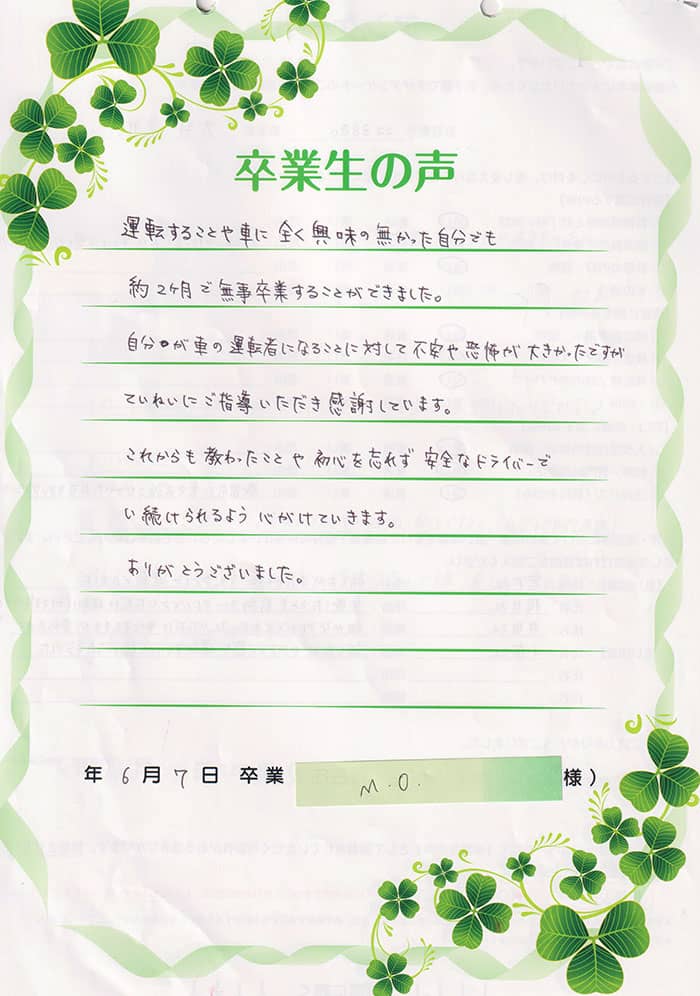 卒業生の声
運転することや車に全く興味の無かった自分でも
約2ヶ月で無事卒業することができました。
自分が車の運転者になることに対して不安や恐怖が大きかったですが
ていねいにご指導いただき感謝しています。
これからも教わったことや初心を忘れず安全なドライバーで
い続けられるよう心がけていきます。
ありがとうございました。
年6月7日 卒業 M.O. 様)